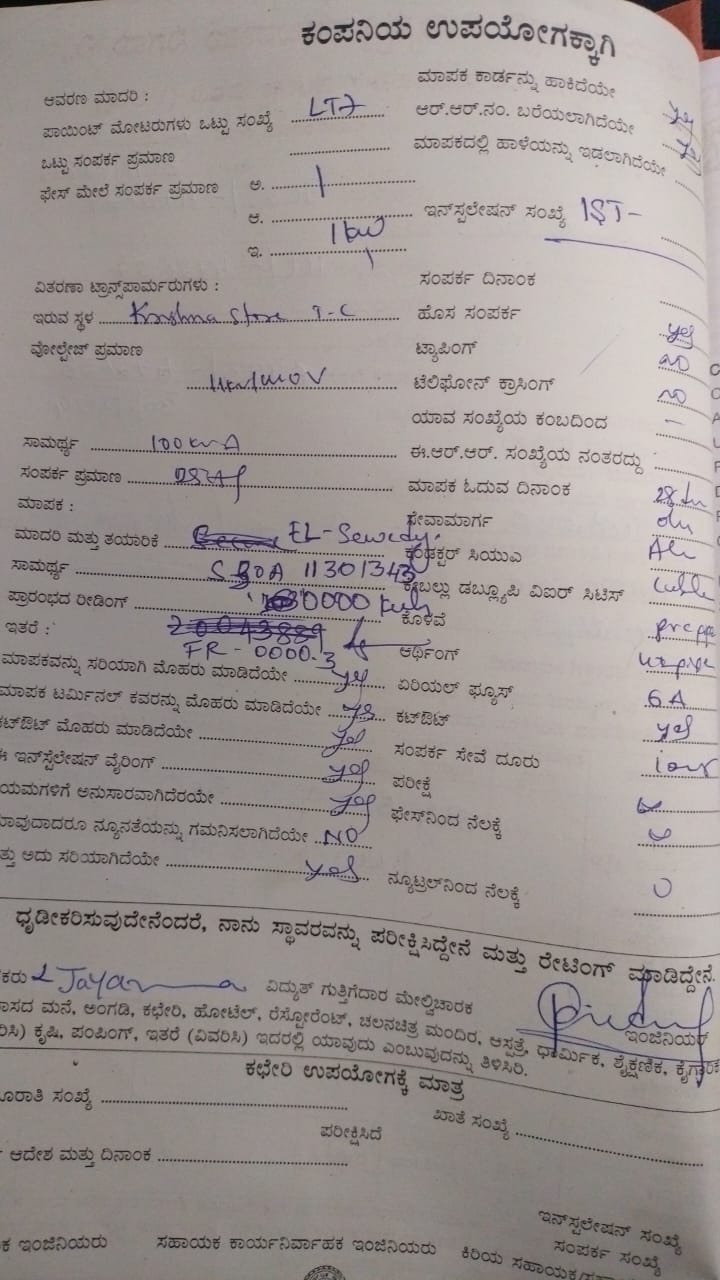 ಕಂಪನಿಯ ಉಪಯೋಗಕ್ಕಾಗಿ
ಆವರಣ ಮಾದರಿ :
ಮಾಪಕ ಕಾರ್ಡನ್ನು ಹಾಕಿದೆಯೇ yes
ಪಾಯಿಂಟ್ ಮೋಟರುಗಳು ಒಟ್ಟು ಸಂಖ್ಯೆ LT7
ಆರ್.ಆರ್.ನಂ. ಬರೆಯಲಾಗಿದೆಯೇ
ಒಟ್ಟು ಸಂಪರ್ಕ ಪ್ರಮಾಣ
ಮಾಪಕದಲ್ಲಿ ಹಾಳೆಯನ್ನು ಇಡಲಾಗಿದೆಯೇ
ಫೇಸ್ ಮೇಲೆ ಸಂಪರ್ಕ ಪ್ರಮಾಣ ಅ. 1
ಆ.
ಇನ್‌ಸ್ಪಲೇಷನ್ ಸಂಖ್ಯೆ IST-
ಇ. 1kw
ವಿತರಣಾ ಟ್ರಾನ್ಸ್‌ಪಾರ್ಮರುಗಳು :
ಸಂಪರ್ಕ ದಿನಾಂಕ
ಇರುವ ಸ್ಥಳ Krishna Store T-C
ಹೊಸ ಸಂಪರ್ಕ yes
ವೋಲ್ಟೇಜ್ ಪ್ರಮಾಣ
ಟ್ಯಾಪಿಂಗ್ no
ಟೆಲಿಫೋನ್ ಕ್ರಾಸಿಂಗ್ no
ಯಾವ ಸಂಖ್ಯೆಯ ಕಂಬದಿಂದ -
ಸಾಮರ್ಥ್ಯ 100 kvA
ಈ.ಆರ್.ಆರ್. ಸಂಖ್ಯೆಯ ನಂತರದ್ದು
ಸಂಪರ್ಕ ಪ್ರಮಾಣ
ಮಾಪಕ ಓದುವ ದಿನಾಂಕ 28th
ಮಾಪಕ :
ಸೇವಾಮಾರ್ಗ
ಮಾದರಿ ಮತ್ತು ತಯಾರಿಕೆ EL-Sewedy.
ಕಂಡಕ್ಟರ್ ಸಿಯುಎ
ಸಾಮರ್ಥ್ಯ 11301343
ಕೇಬಲ್ಲು ಡಬ್ಲ್ಯೂಪಿ ವಿಐರ್ ಸಿಟಿಸ್
ಪ್ರಾರಂಭದ ರೀಡಿಂಗ್ 0000 kwh
ಕೊಳವೆ
ಇತರೆ : 20043889
FR - 0000.3
ಆರ್ಥಿಂಗ್
ಮಾಪಕವನ್ನು ಸರಿಯಾಗಿ ಮೊಹರು ಮಾಡಿದೆಯೇ yes
ಏರಿಯಲ್ ಫ್ಯೂಸ್ 6A
ಮಾಪಕ ಟರ್ಮಿನಲ್ ಕವರನ್ನು ಮೊಹರು ಮಾಡಿದೆಯೇ yes
ಕಟ್‌ಔಟ್ yes
ಕಟ್‌ಔಟ್ ಮೊಹರು ಮಾಡಿದೆಯೇ yes
ಸಂಪರ್ಕ ಸೇವೆ ದೂರು
ಈ ಇನ್‌ಸ್ಪೆಲೇಷನ್ ವೈರಿಂಗ್ yes
ಪರೀಕ್ಷೆ
ಯಮಗಳಿಗೆ ಅನುಸಾರವಾಗಿದೆರಯೇ yes
ಫೇಸ್‌ನಿಂದ ನೆಲಕ್ಕೆ
ಾವುದಾದರೂ ನ್ಯೂನತೆಯನ್ನು ಗಮನಿಸಲಾಗಿದೆಯೇ NO
ತ್ತು ಅದು ಸರಿಯಾಗಿದೆಯೇ yes
ನ್ಯೂಟ್ರಲ್‌ನಿಂದ ನೆಲಕ್ಕೆ 0
ಧೃಡೀಕರಿಸುವುದೇನೆಂದರೆ, ನಾನು ಸ್ಥಾವರವನ್ನು ಪರೀಕ್ಷಿಸಿದ್ದೇನೆ ಮತ್ತು ರೇಟಿಂಗ್ ಮಾಡಿದ್ದೇನೆ.
ಕರು ವಿದ್ಯುತ್ ಗುತ್ತಿಗೆದಾರ ಮೇಲ್ವಿಚಾರಕ ಇಂಜಿನಿಯರ್
ಾಸದ ಮನೆ, ಅಂಗಡಿ, ಕಛೇರಿ, ಹೋಟೆಲ್, ರೆಸ್ಟೋರೆಂಟ್, ಚಲನಚಿತ್ರ ಮಂದಿರ, ಆಸ್ಪತ್ರೆ, ಧಾರ್ಮಿಕ, ಶೈಕ್ಷಣಿಕ, ಕೈಗಾರಿಕ
ರಿಸಿ) ಕೃಷಿ, ಪಂಪಿಂಗ್, ಇತರೆ (ವಿವರಿಸಿ) ಇದರಲ್ಲಿ ಯಾವುದು ಎಂಬುವುದನ್ನು ತಿಳಿಸಿರಿ.
ಕಛೇರಿ ಉಪಯೋಗಕ್ಕೆ ಮಾತ್ರ
ೂರಾತಿ ಸಂಖ್ಯೆ
ಖಾತೆ ಸಂಖ್ಯೆ
ಪರೀಕ್ಷಿಸಿದೆ
ಆದೇಶ ಮತ್ತು ದಿನಾಂಕ
ಇನ್‌ಸ್ಪಲೇಷನ್ ಸಂಖ್ಯೆ
ಸಂಪರ್ಕ ಸಂಖ್ಯೆ
ಕ ಇಂಜಿನಿಯರು ಸಹಾಯಕ ಕಾರ್ಯನಿರ್ವಾಹಕ ಇಂಜಿನಿಯರು ಕಿರಿಯ ಸಹಾಯಕ